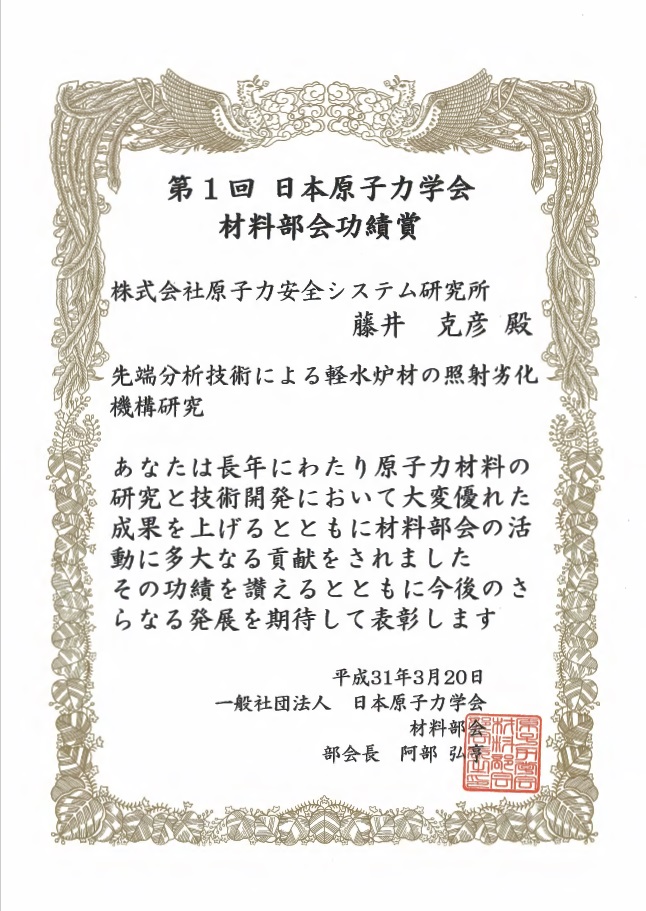 第1回 日本原子力学会
材料部会功績賞
株式会社原子力安全システム研究所
藤井 克彦 殿
先端分析技術による軽水炉材の照射劣化
機構研究
あなたは長年にわたり原子力材料の
研究と技術開発において大変優れた
成果を上げるとともに材料部会の活
動に多大なる貢献をされました
その功績を讃えるとともに今後のさ
らなる発展を期待して表彰します
平成31年3月20日
一般社団法人 日本原子力学会
材料部会
部会長 阿部 弘亨